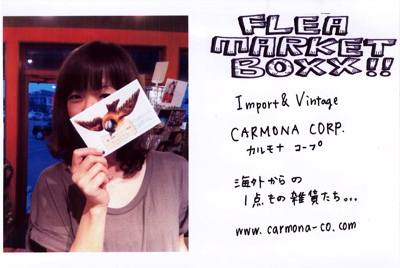 FLEA
MARKET
BOXX!!
Import & Vintage
CARMONA CORP.
カルモナ コープ
海外からの
1点もの雑貨たち...
www.carmona-co.com